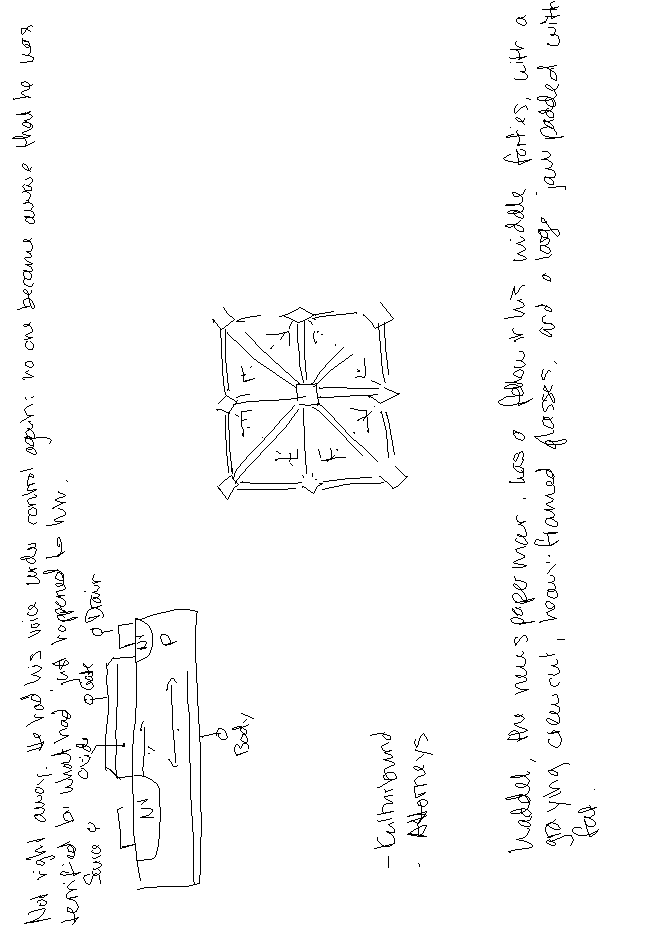 Not right away. He had his voice under control again: no one became aware that he was
terrified by what had just happened to him.
Source
Oxide
Gate
Drain
N+
N+
P
Body
- Kulturbund
- Attorneys
Haddel, the newspaperman, was a fellow in his middle forties, with a
graying crewcut, heavy-framed glasses, and a large jaw padded with
fat.